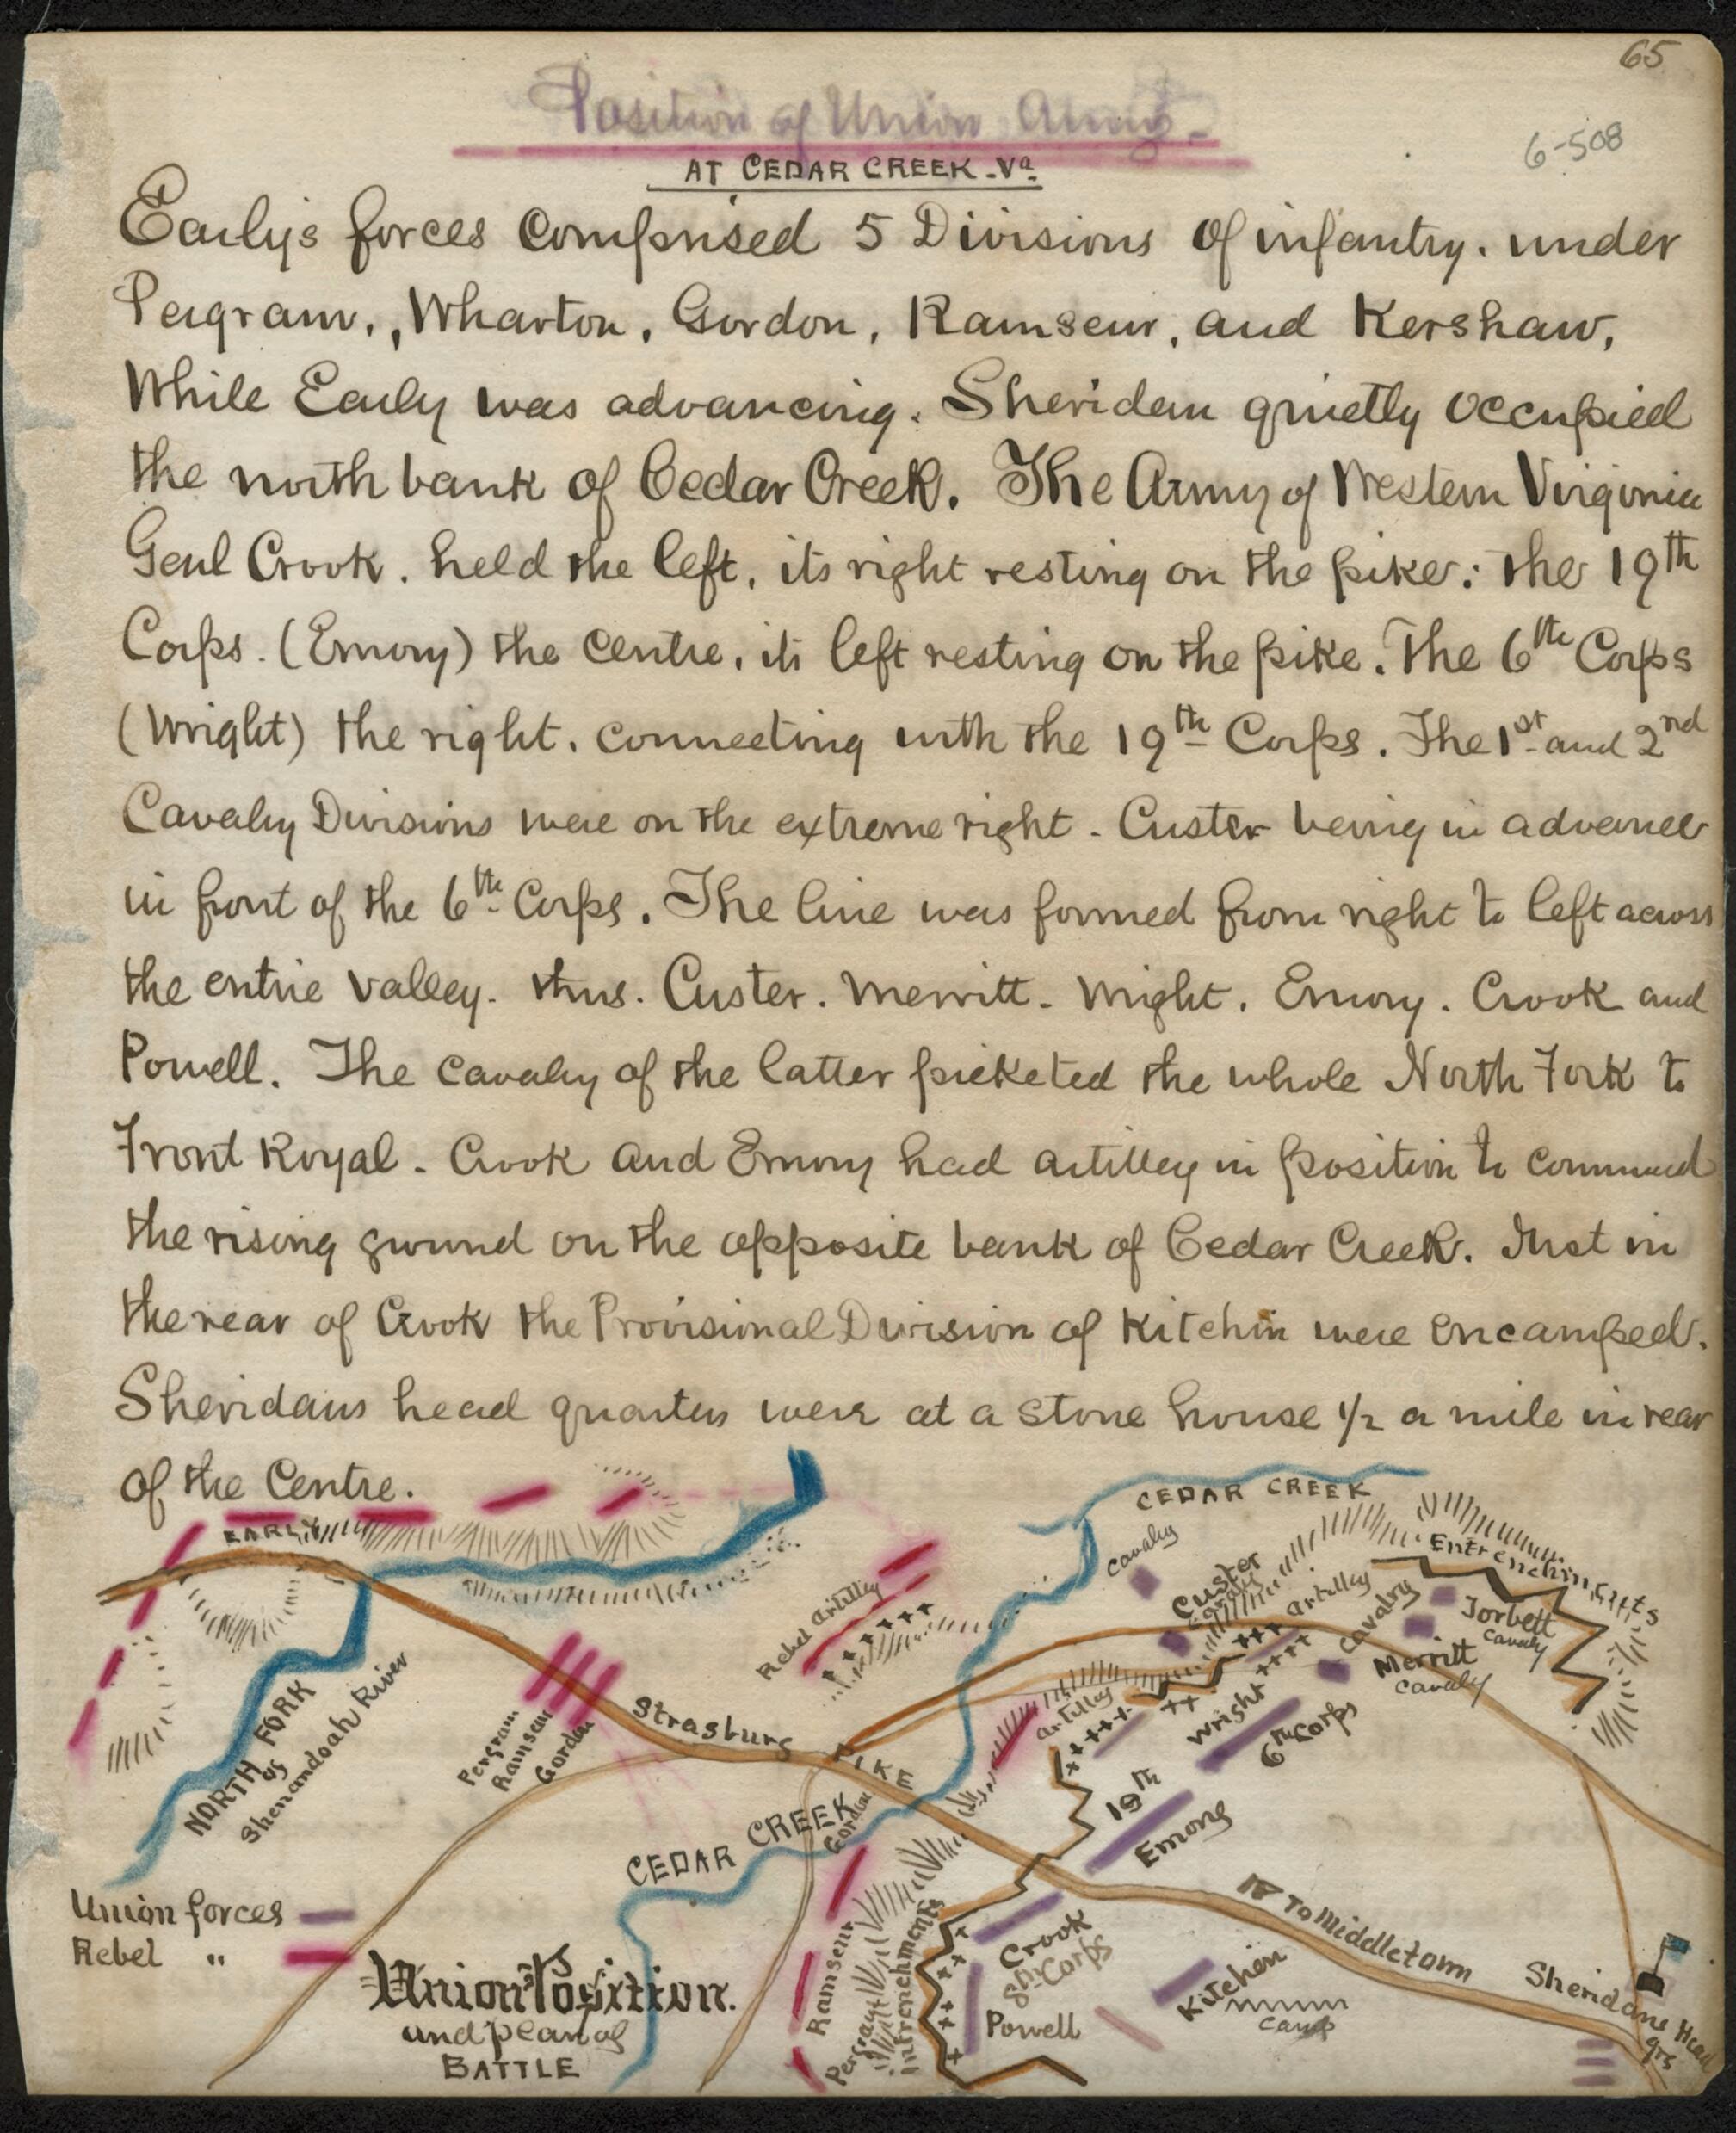 65
Position of Union Army.
6-508
AT CEDAR CREEK. Va.
Early's forces comprised 5 Divisions of infantry. under
Pegram., Wharton, Gordon, Ramseur, and Kershaw,
While Early was advancing. Sheridan quietly occupied
the north bank of Cedar Creek. The Army of Western Virginia
Genl Crook. held the left, its right resting on the pike: the 19th
Corps. (Emory) the centre, its left resting on the pike. The 6th Corps
(Wright) the right, connecting with the 19th Corps. The 1st and 2nd
Cavalry Divisions were on the extreme right - Custer being in advance
in front of the 6th Corps. The line was formed from right to left across
the entire valley. thus. Custer. Merritt. Wright. Emory. Crook and
Powell. The cavalry of the latter picketed the whole North Fork to
Front Royal. Crook and Emory had artillery in position to command
the rising ground on the opposite bank of Cedar Creek. Just in
the rear of Crook the Provisional Division of Kitchin were encamped.
Sheridans head quarters were at a stone house 1/2 a mile in rear
of the Centre.
EARLY
CEDAR CREEK
Cavalry
Custer
Cavalry
Artillery
Cavalry
Entrenchments
Torbett
Cavalry
Merritt
Cavalry
Rebel Artillery
NORTH FORK
of
Shenandoah River
Pergram
Ramseur
Gordon
Strasburg
PIKE
Artillery
Wright
6th Corps
19th
Emory
CEDAR CREEK
Gordon
Union forces
Rebel "
Union Position.
and plan of
BATTLE
Ramseur
Pergram
Intrenchments
Crook
8th Corps
Powell
Kitchen
camp
To Middletown
Sheridans Head
qrs